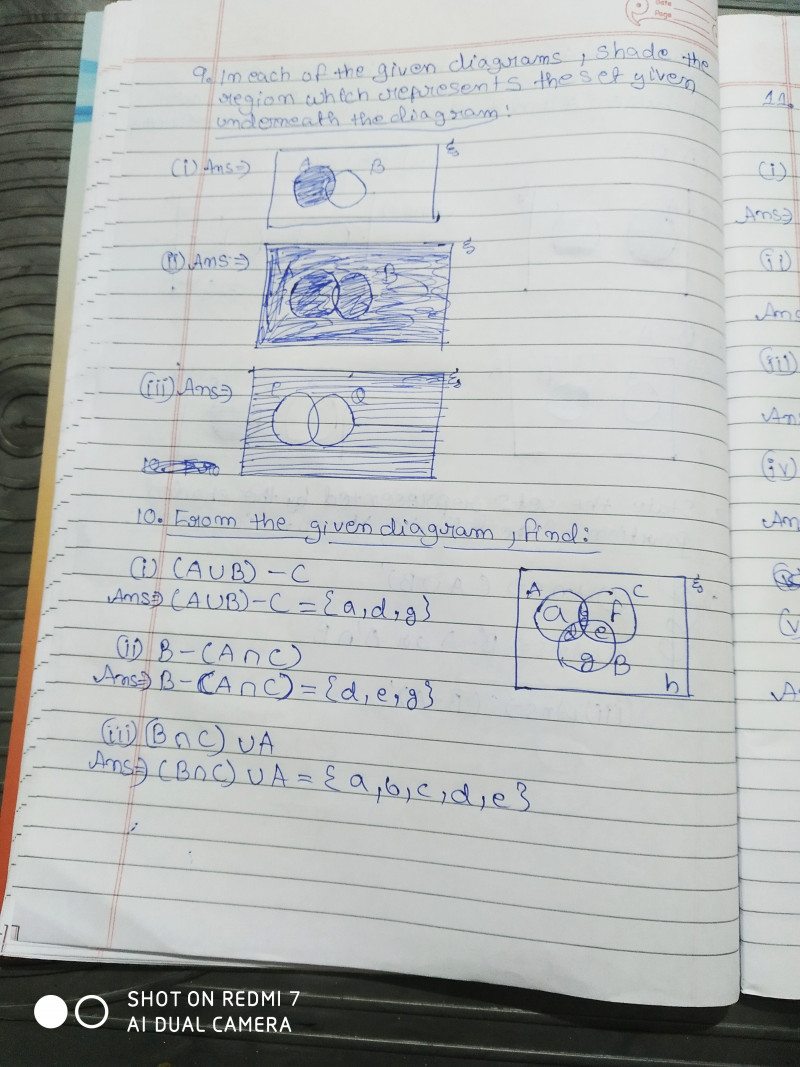 Date
Page
9. In each of the given diagrams, shade the
region which represents the set given
underneath the diagram:
(i) Ans⇒
A B ξ
(ii) Ans⇒
B ξ
(iii) Ans⇒
P Q ξ
10. From the given diagram, find:
(i) (A∪B) – C
Ans⇒ (A∪B) – C = {a, d, g}
(ii) B – (A∩C)
Ans⇒ B – (A∩C) = {d, e, g}
(iii) (B∩C) ∪A
Ans⇒ (B∩C) ∪A = {a, b, c, d, e}
A C ξ
a f
d e
g B
h
17
11.
(i)
Ans⇒
(ii)
Ans
(iii)
An
(iv)
An
(v
A
SHOT ON REDMI 7
AI DUAL CAMERA